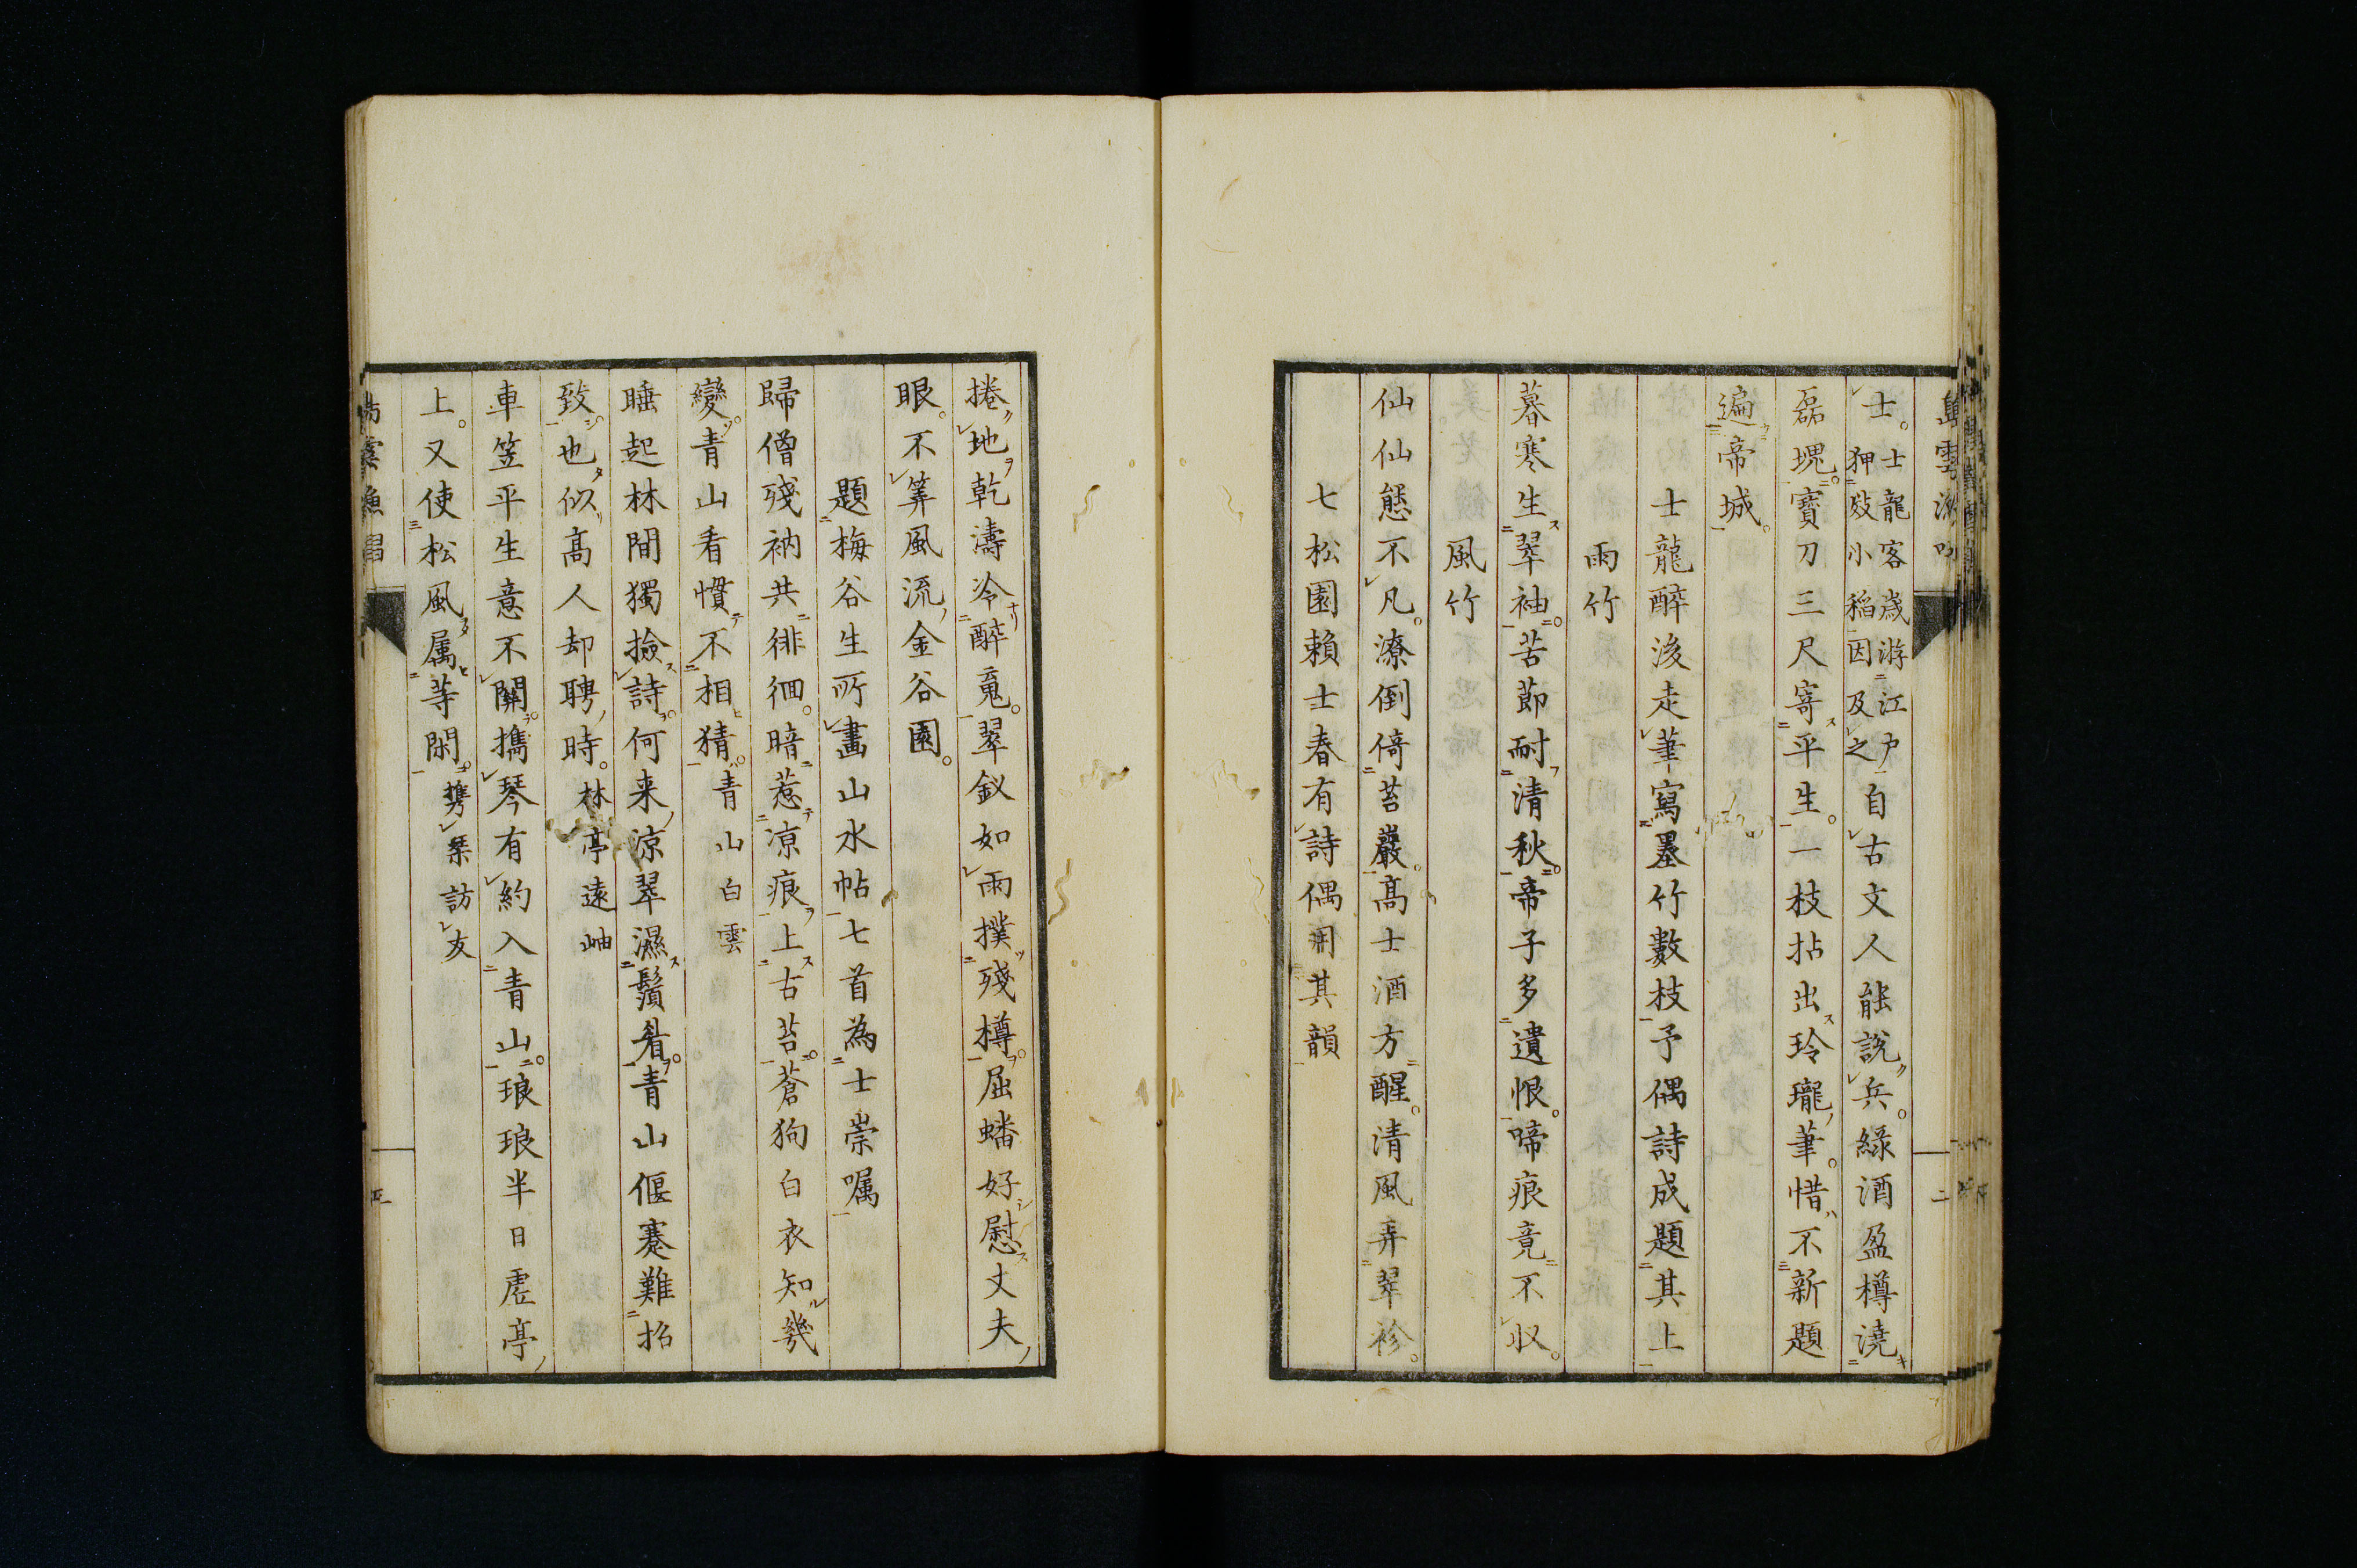 士。士龍客歳游江戸
狎妓小稲因及之自古文人能説兵。緑酒盈樽澆
磊塊。寶刀三尺寄平生。一枝拈出玲瓏筆。惜不新題
遍帝城。
士龍醉後走筆寫墨竹數枝予偶詩成題其上
雨竹
暮寒生翠袖。苦節耐清秋。帝子多遺恨。啼痕竟不収。
風竹
仙仙態不凡。潦倒倚苔巖。高士酒方醒。清風弄翠衫。
七松園賴士春有詩偶用其韻
捲地乾濤冷醉魂。翠釵如雨撲殘樽。屈蟠好慰丈夫
眼。不筭風流金谷園。
題梅谷生所畫山水帖七首為士崇囑
歸僧殘衲共徘徊。暗惹凉痕上古苔。蒼狗白衣知幾
變。青山看慣不相猜。青山白雲
睡起林間獨撿詩。何来凉翠濕鬚眉。青山偃蹇難招
致。也似高人却聘時。林亭遠岫
車笠平生意不關。攜琴有約入青山。琅琅半日虚亭
上。又使松風属等閑。携琴訪友